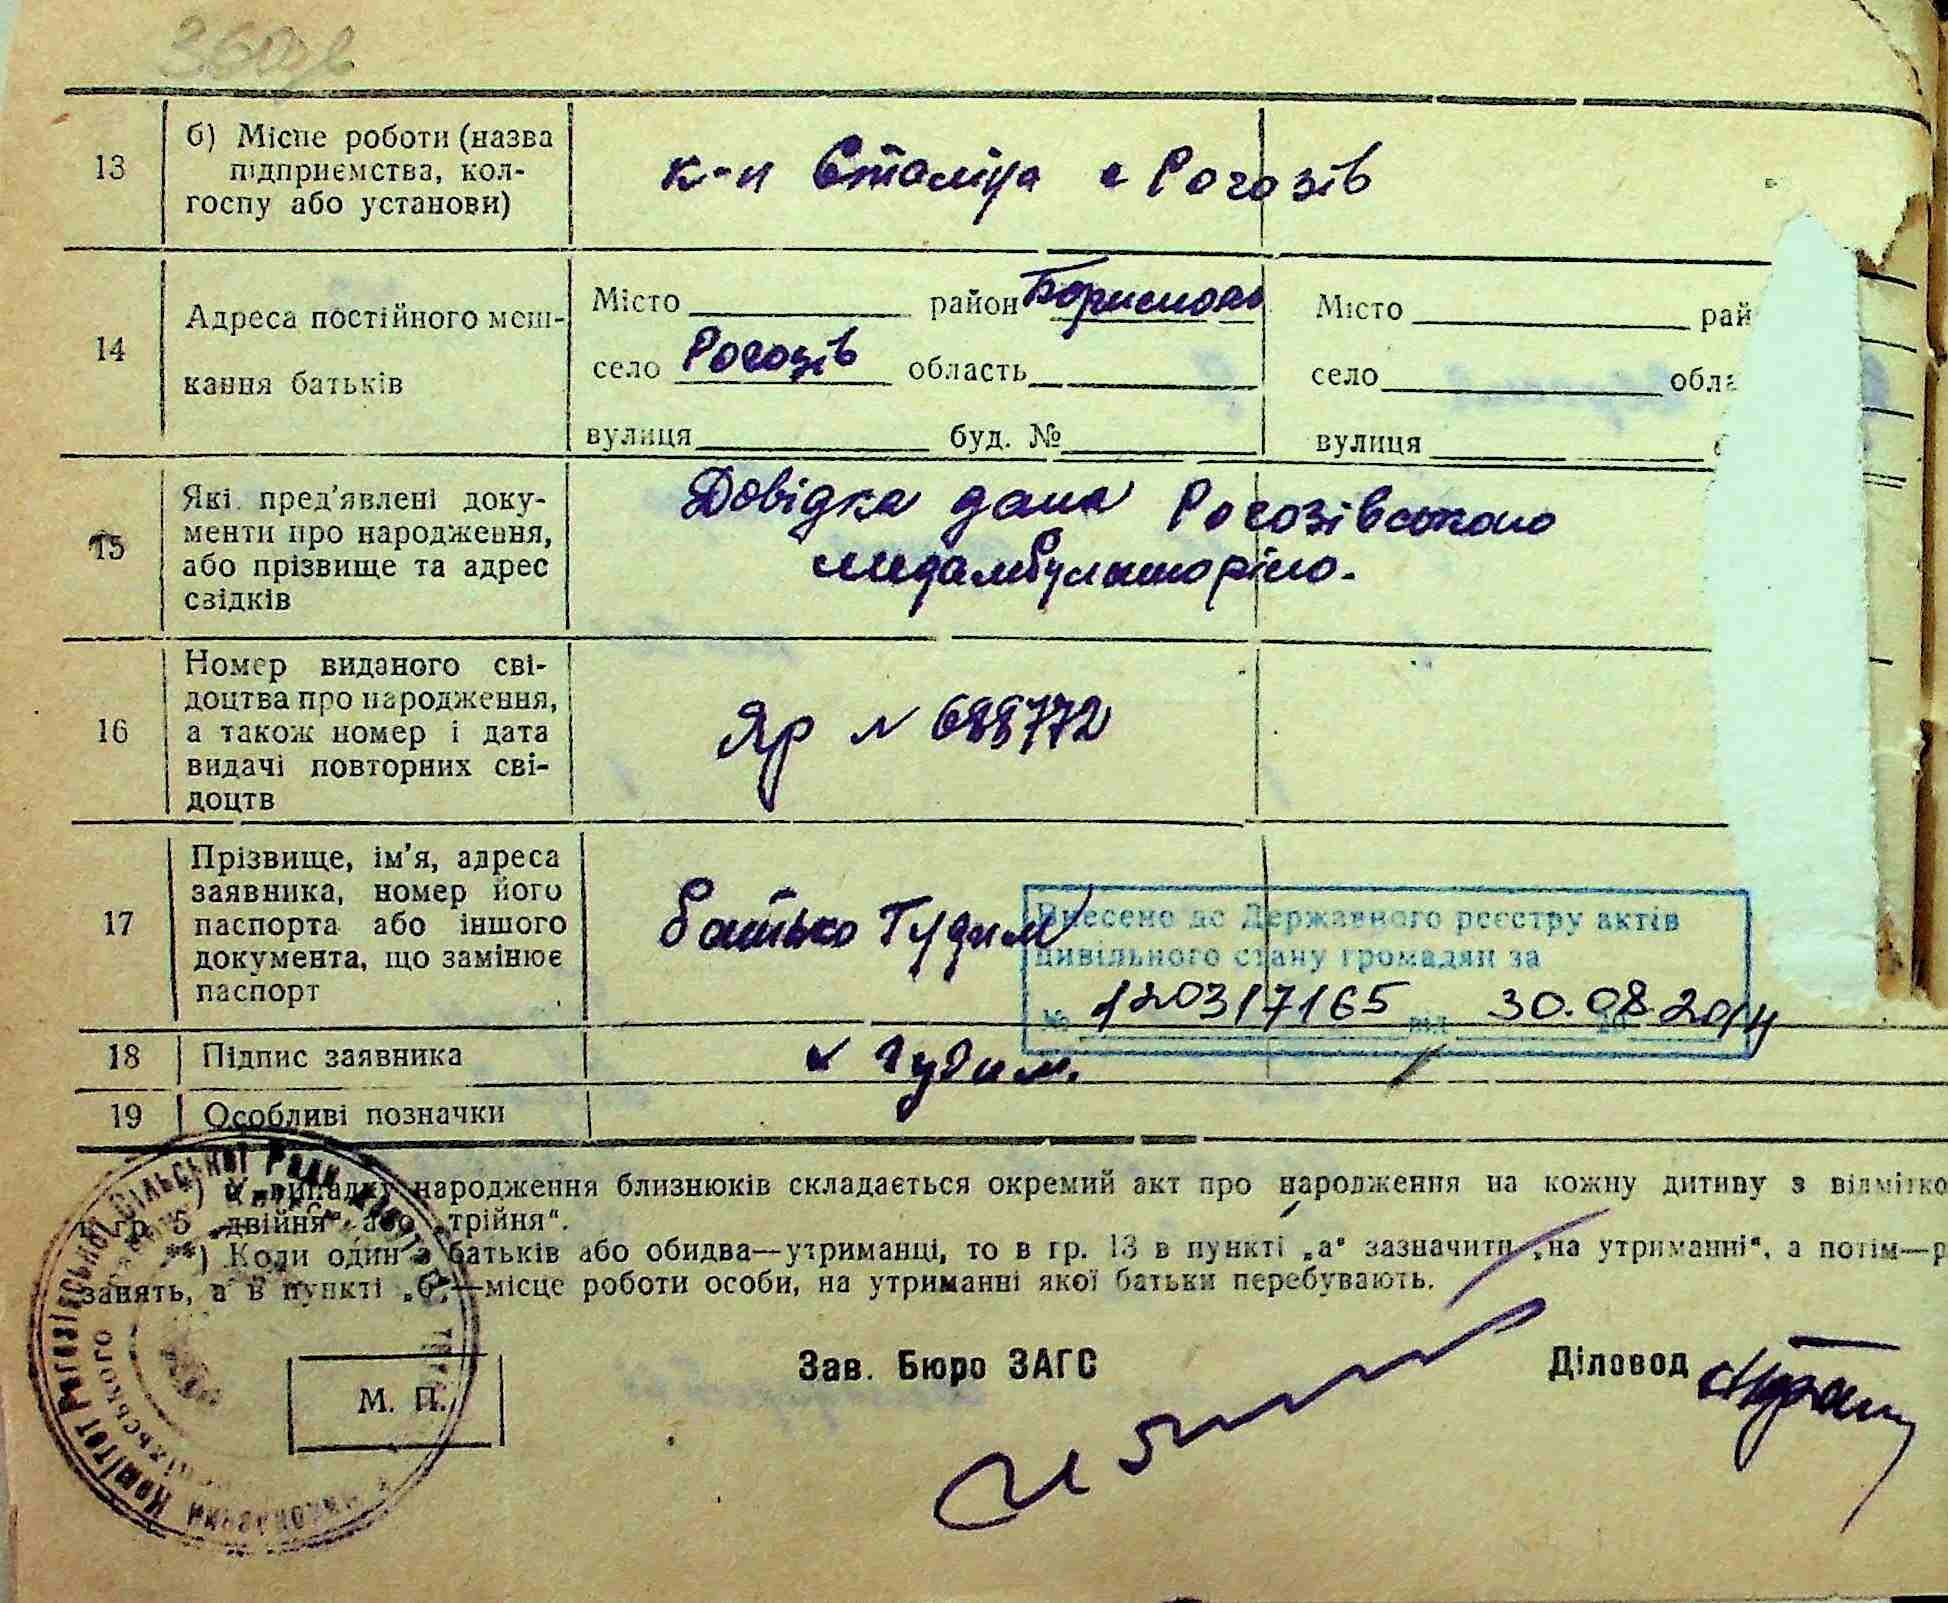 13
б) Місце роботи (назва
підприємства, кол-
госпу або установи)
к-п Сталіна с Рогозів
14
Адреса постійного меш-
кання батьків
Місто район Бориспол
село Рогозів область
вулиця буд. №
Місто рай
село обла
вулиця
15
Які пред'явлені доку-
менти про народження,
або прізвище та адрес
свідків
Довідка дана Рогозівською
медамбулаторією.
16
Номер виданого сві-
доцтва про народження,
а також номер і дата
видачі повторних сві-
доцтв
Яр № 688772
17
Прізвище, ім'я, адреса
заявника, номер його
паспорта або іншого
документа, що замінює
паспорт
батько Гудим
Внесено до Державного реєстру актів
цивільного стану громадян за
№ 120317165 від 30.08.2014
18
Підпис заявника
Гудим.
19
Особливі позначки
*) У випадку народження близнюків складається окремий акт про народження на кожну дитину з відмітко
в гр. 5 „двійня" або „трійня".
**) Коли один з батьків або обидва—утриманці, то в гр. 13 в пункті „а" зазначити „на утриманні", а потім—р
занять, а в пункті „б"—місце роботи особи, на утриманні якої батьки перебувають.
М. П.
Зав. Бюро ЗАГС
Діловод
Виконавчий Комітет Рогозівської Сільської Ради